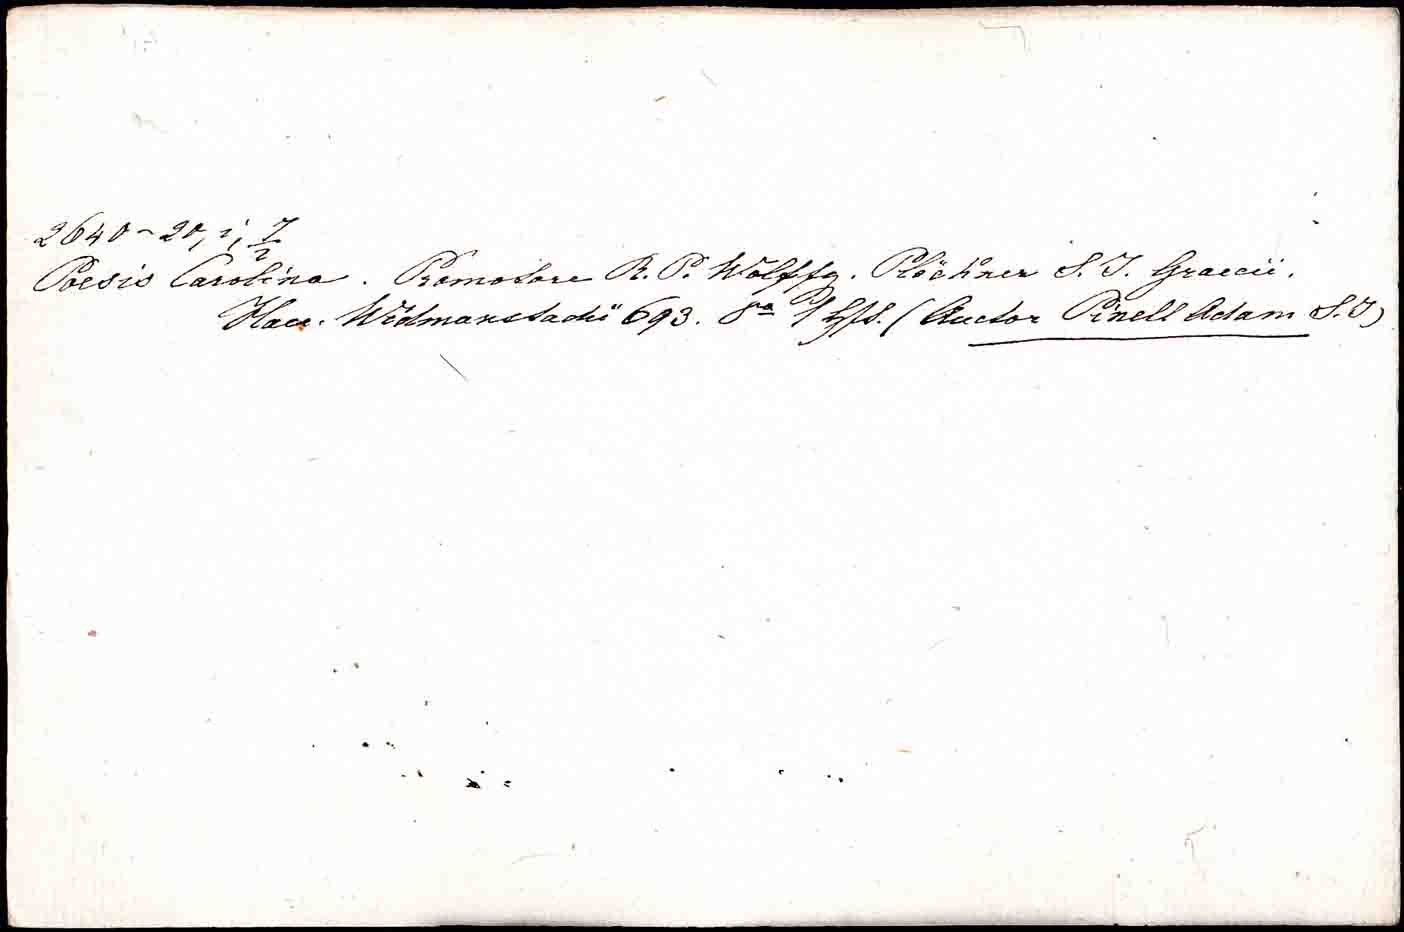 2640~20, i, 7/2
Poesis Carolina. Promotore R. P. Wolffg. Plöckner S. J. Graecii.
Haer. Widmanstadii 693. 8º (Auctor Pinell Adam S. J)